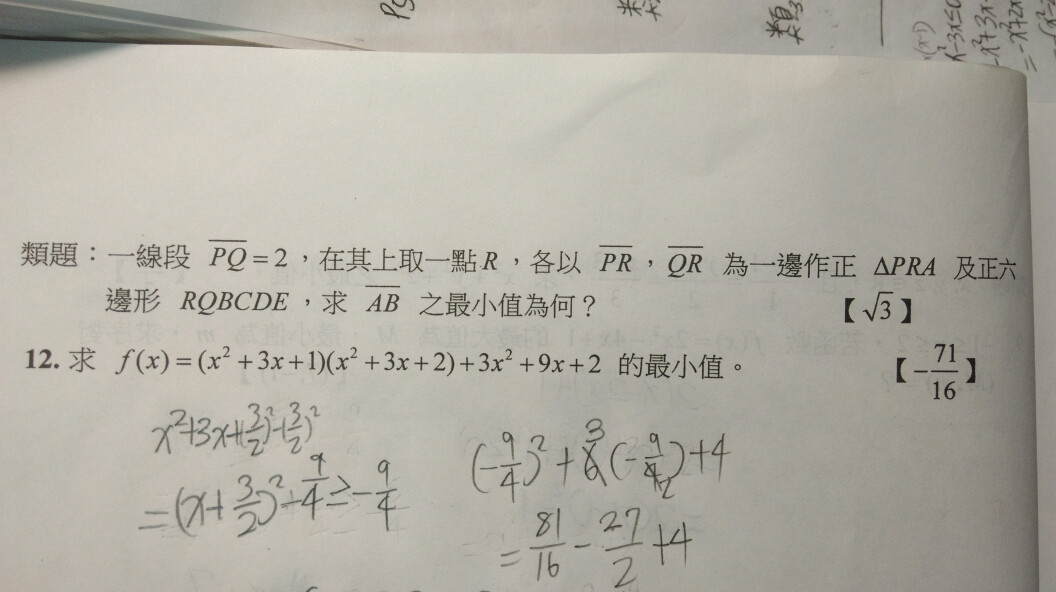 類題：一線段 \overline{PQ} = 2，在其上取一點 R，各以 \overline{PR}，\overline{QR} 為一邊作正 ΔPRA 及正六
邊形 RQBCDE，求 \overline{AB} 之最小值為何？ 【√3】
12. 求 f(x) = (x² + 3x + 1)(x² + 3x + 2) + 3x² + 9x + 2 的最小值。 【-71/16】
x²+3x+(3/2)²-(3/2)²
=(x+3/2)²-9/4≥-9/4
(-9/4)²+6(-9/4)+4
=81/16-27/2+4